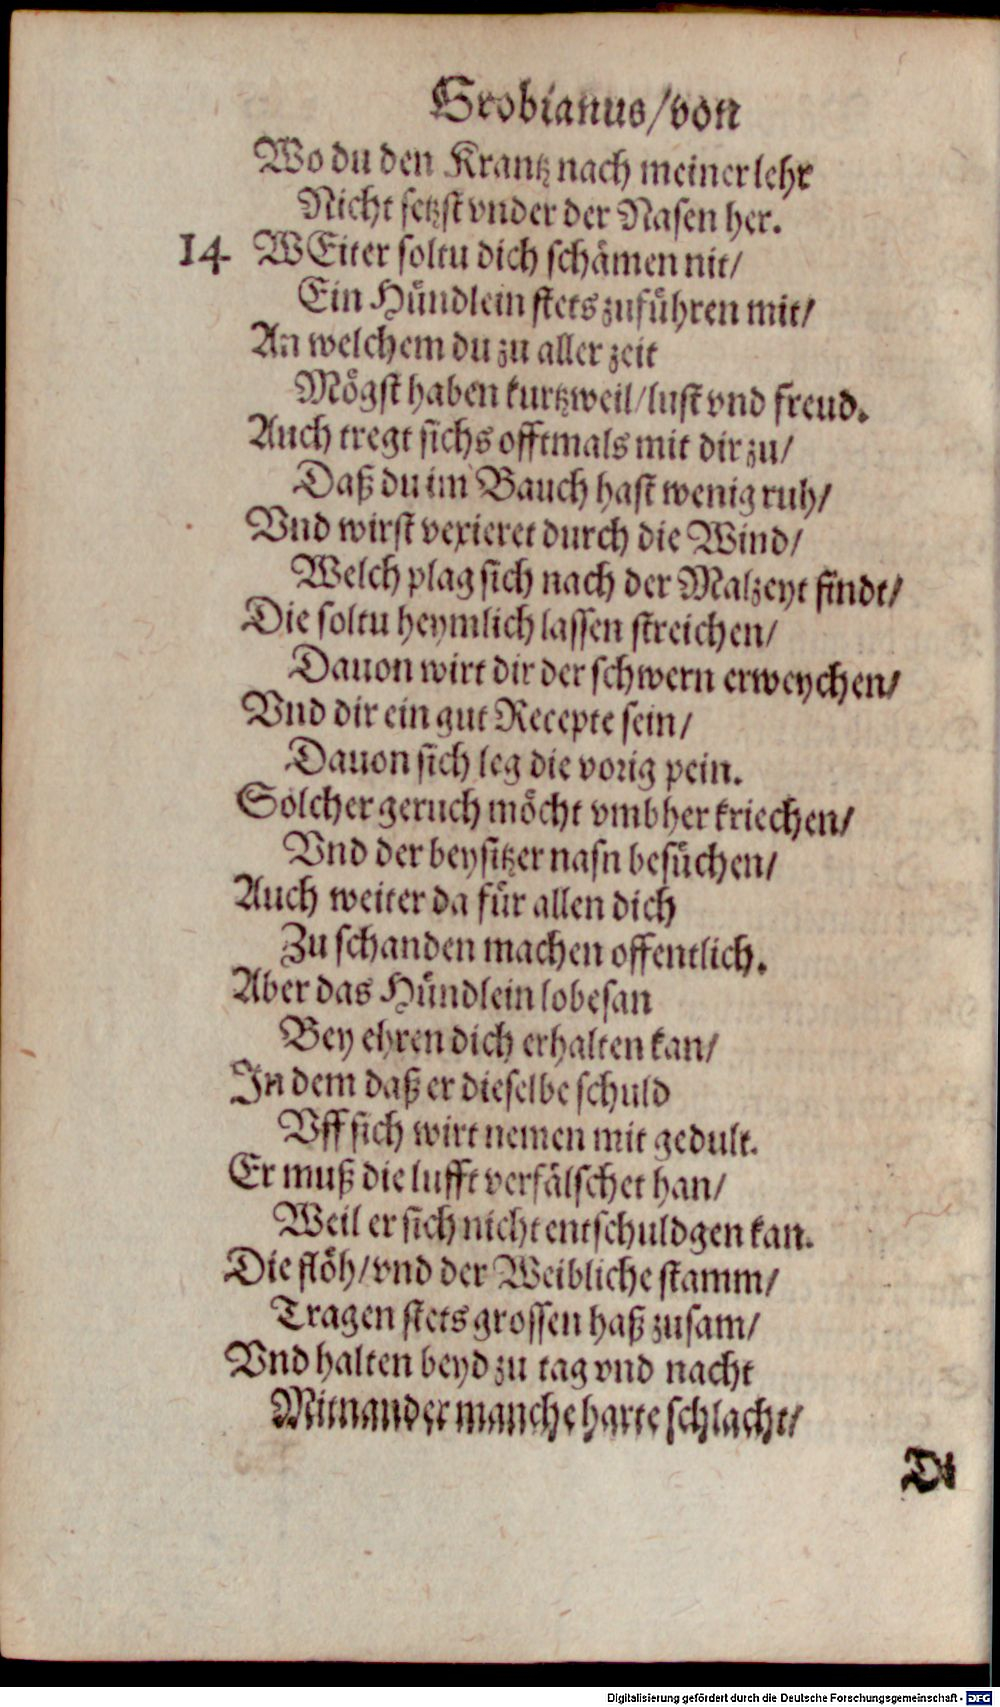 Grobianus/von
Wo du den Krantz nach meiner lehr
Nicht setzst vnder der Nasen her.
14 WEiter soltu dich schämen nit/
Ein Hündlein stets zuführen mit/
An welchem du zu aller zeit
Mögst haben kurtzweil/lust vnd freud.
Auch tregt sichs offtmals mit dir zu/
Daß du im Bauch hast wenig ruh/
Vnd wirst vexieret durch die Wind/
Welch plag sich nach der Malzeyt findt/
Die soltu heymlich lassen streichen/
Dauon wirt dir der schwern erweychen/
Vnd dir ein gut Recepte sein/
Dauon sich leg die vorig pein.
Solcher geruch möcht vmbher kriechen/
Vnd der beysitzer nasn besüchen/
Auch weiter da für allen dich
Zu schanden machen offentlich.
Aber das Hündlein lobesan
Bey ehren dich erhalten kan/
In dem daß er dieselbe schuld
Vff sich wirt nemen mit gedult.
Er muß die lufft verfälschet han/
Weil er sich nicht entschuldgen kan.
Die flöh/vnd der Weibliche stamm/
Tragen stets grossen haß zusam/
Vnd halten beyd zu tag vnd nacht
Mitnander manche harte schlacht/
Digitalisierung gefördert durch die Deutsche Forschungsgemeinschaft - DFG